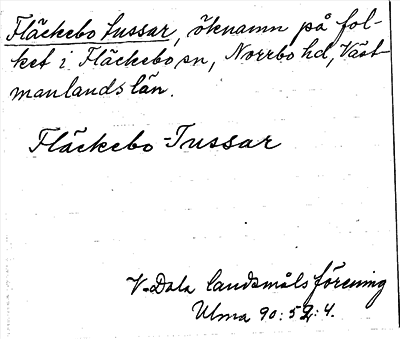 Fläckebo tussar, öknamn på fol-
ket i Fläckebo sn, Norrbo hd, Väst
manlands län.
Fläckebo-Tussar
V-Dala landsmålsförening
Ulma 90:52:4.